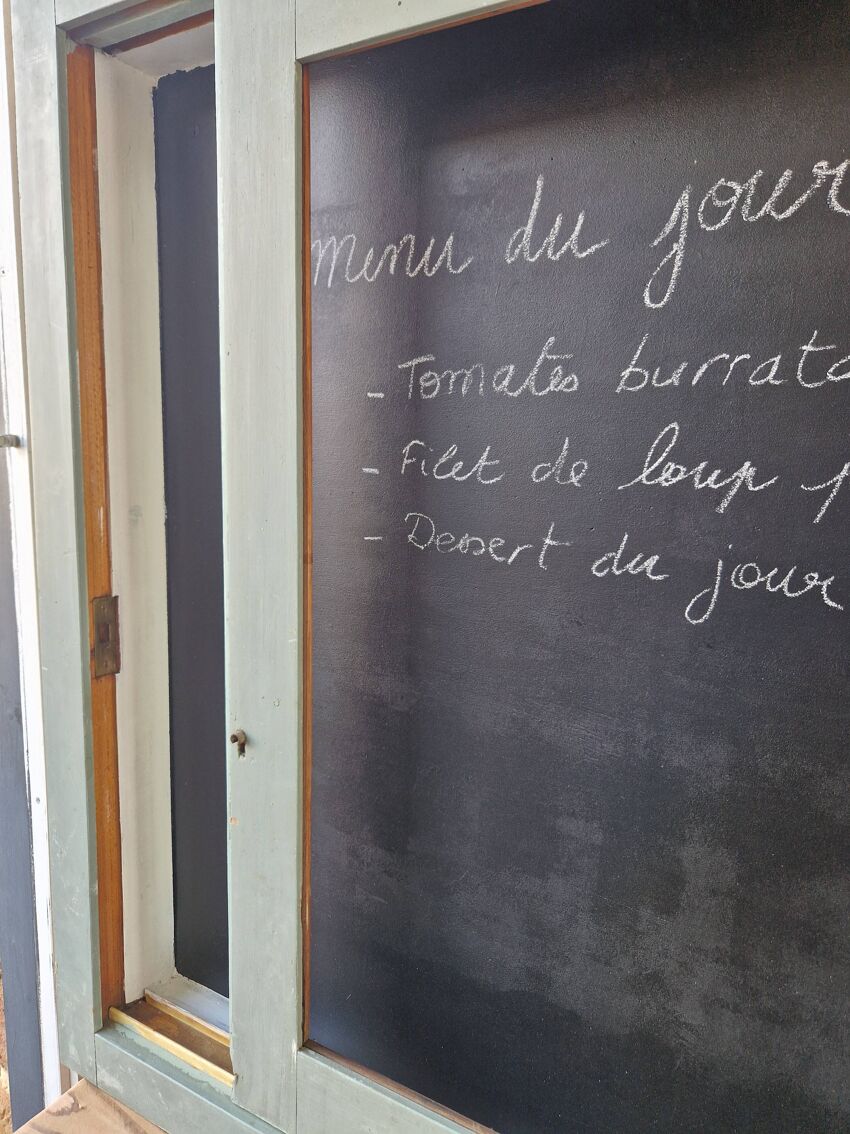 Menu du jour
- Tomates burrata
- Filet de loup
- Dessert du jour